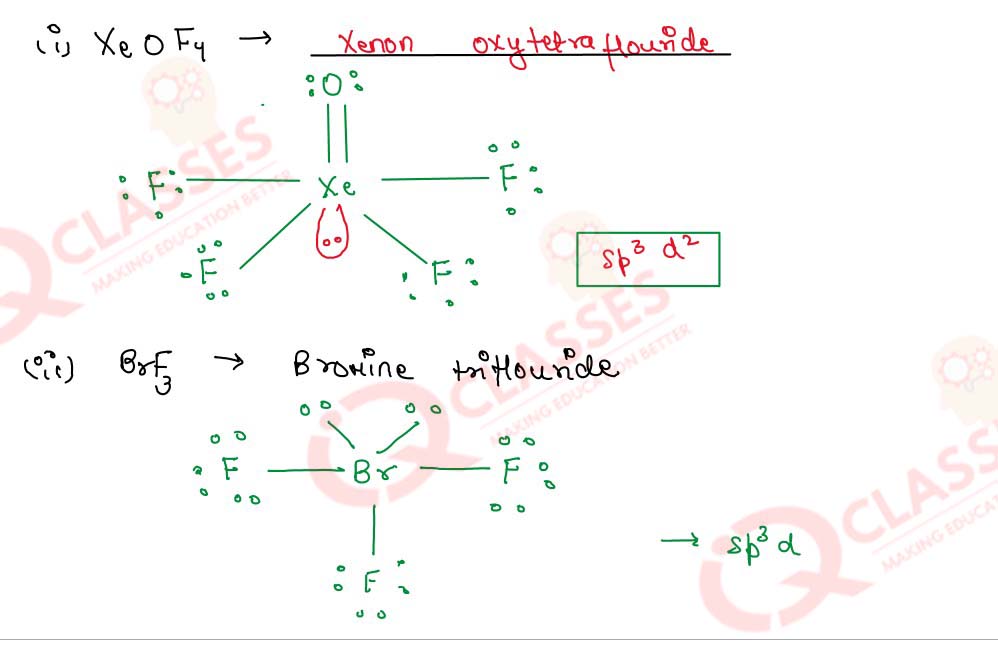 (i) XeOF4 → Xenon oxytetraflouride
:O:
:F: Xe F:
F F:
sp³ d²
(ii) BrF3 → Bromine triflouride
F Br F:
:F:
→ sp³d
IQ CLASSES
MAKING EDUCATION BETTER
IQ CLASSES
MAKING EDUCATION BETTER
IQ CLASSES
MAKING EDUCATION